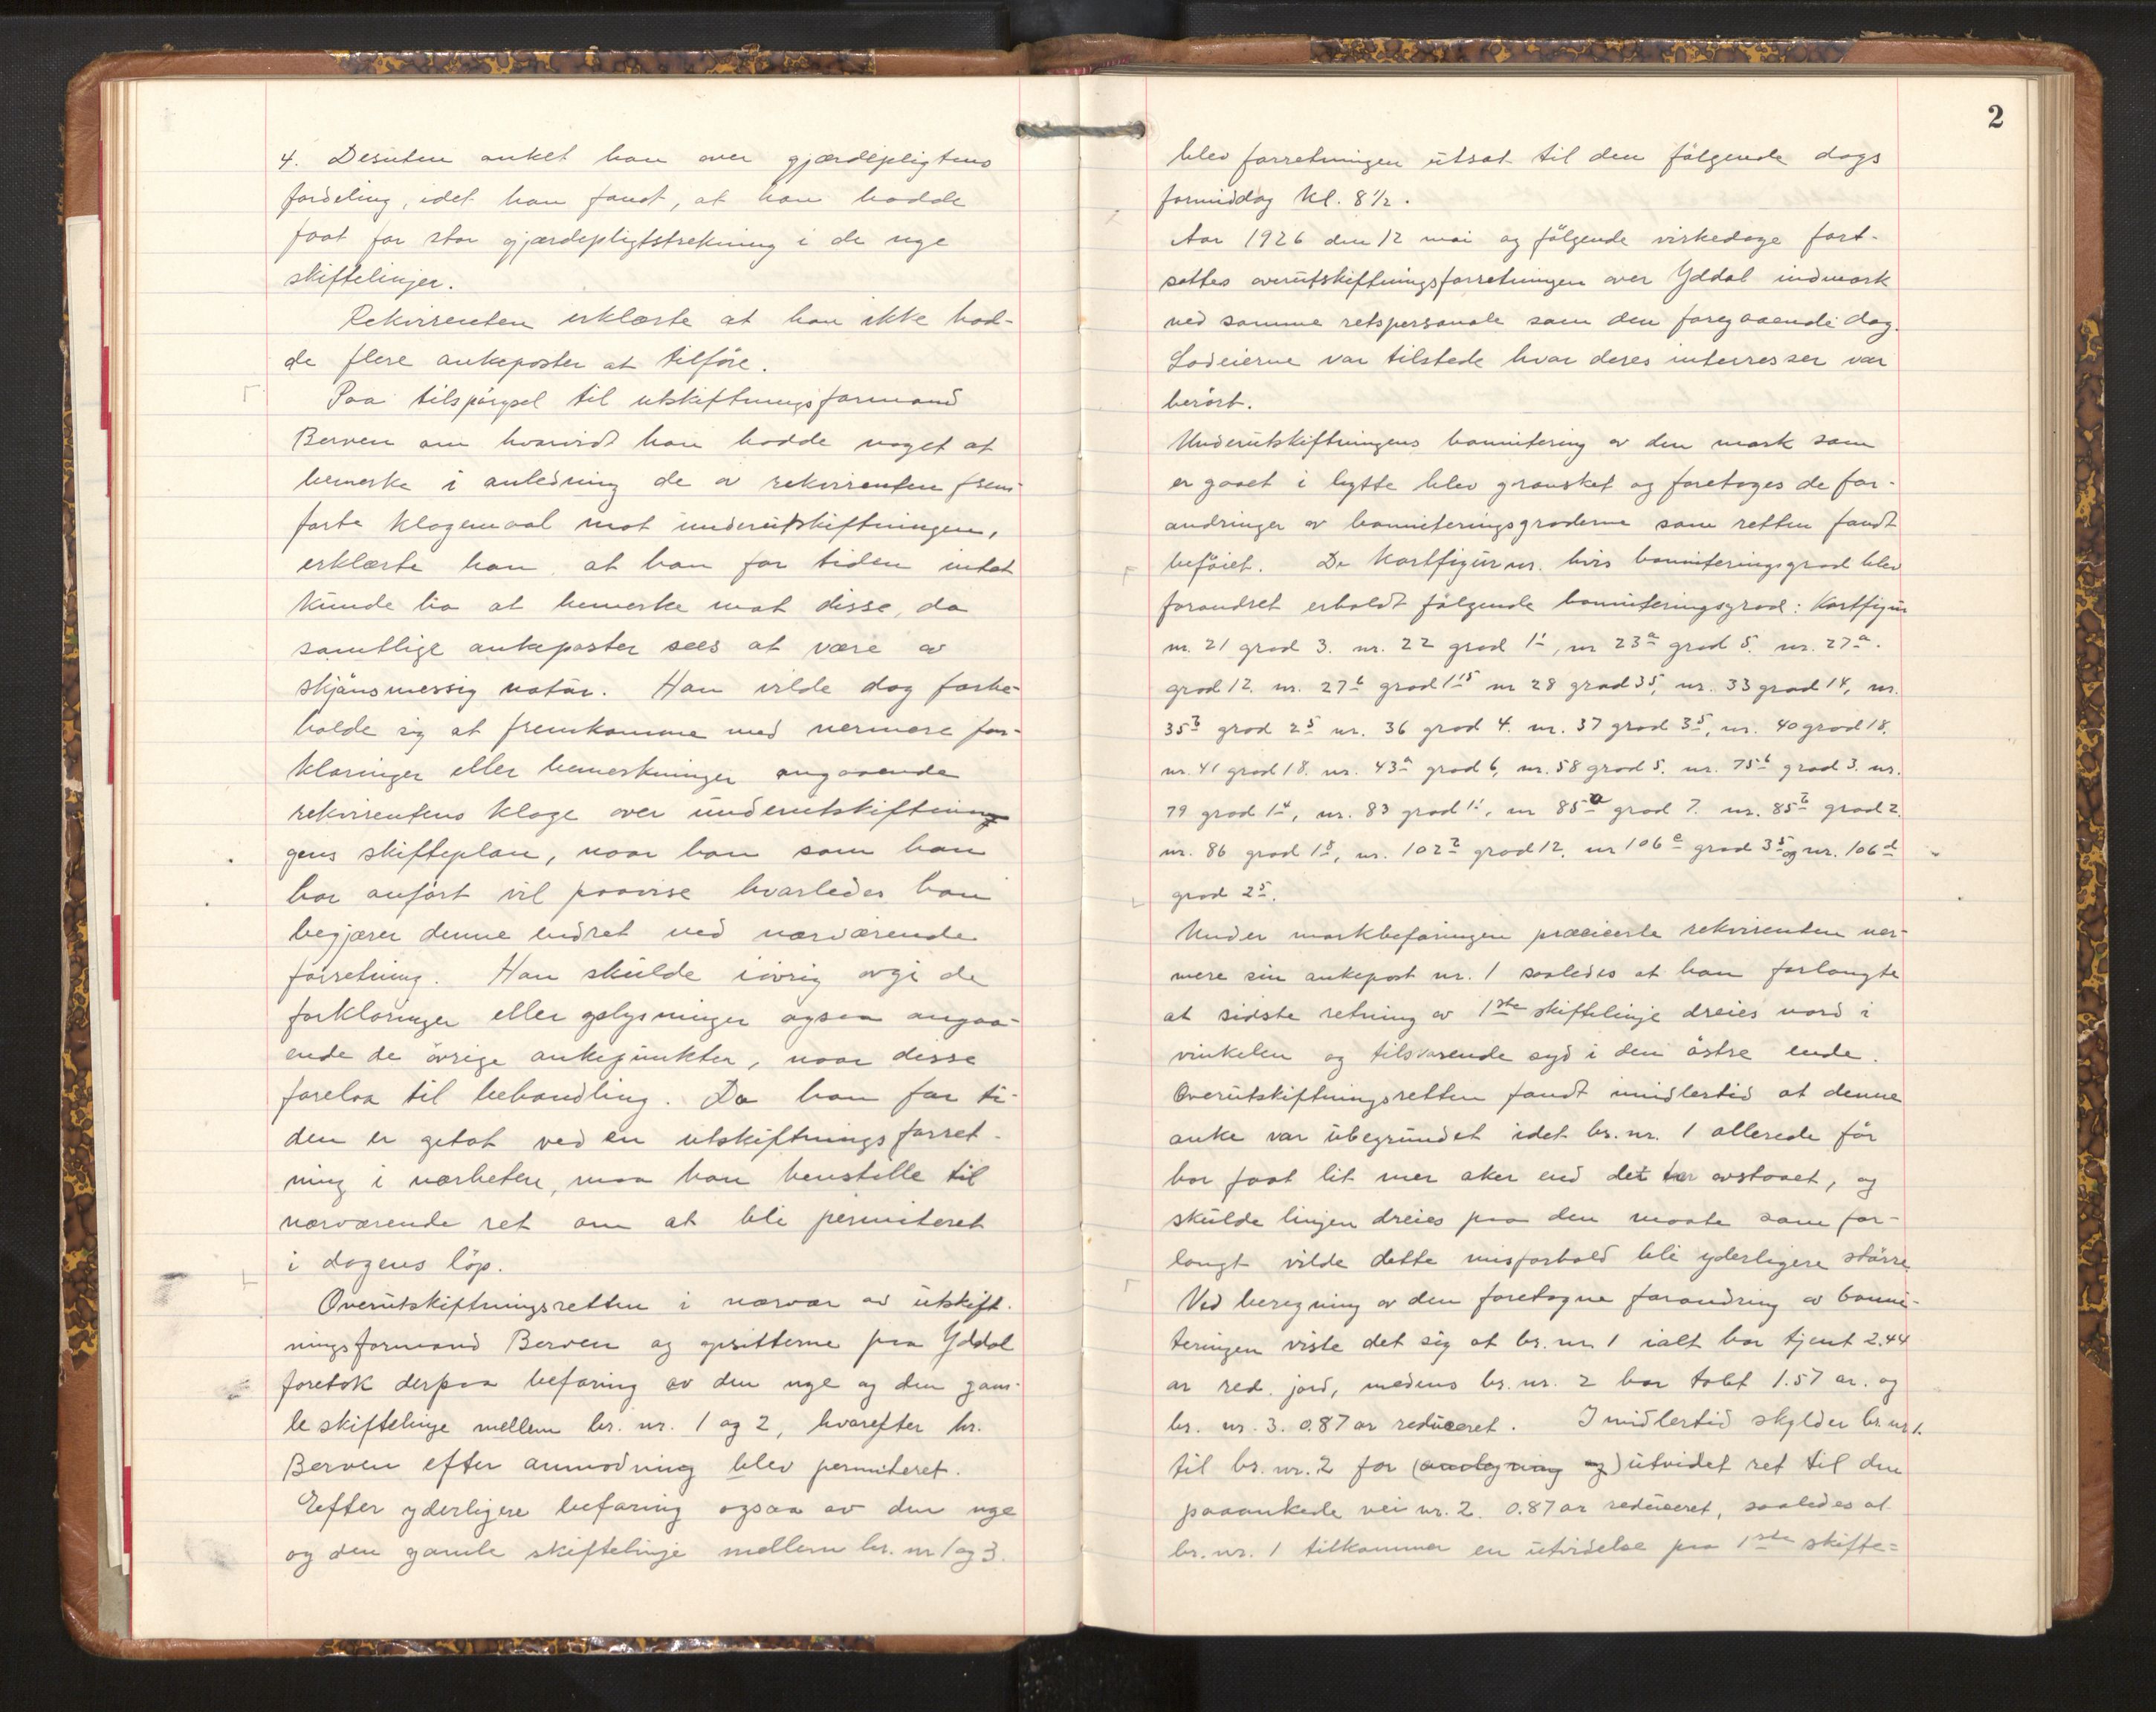 4. Desuten anket han over gjærdepligtens
fordeling, idet han fandt, at han hadde
faat for stor gjærdepligtstrekning i de nye
skiftelinjer.
Rekvirenten erklærte at han ikke had-
de flere ankeposter at tilføre.
Paa tilspørgsel til utskiftningsformand
Berven om hvorvidt han hadde noget at
bemerke i anledning de av rekvirenten frem-
førte klagemaal mot underutskiftningen,
erklærte han at han for tiden intet
kunde ha at bemerke mot disse, da
samtlige ankeposter sees at være av
skjønsmessig natur. Han vilde dog forbe-
holde sig at fremkomme med nermere for-
klaringer eller bemerkninger angaaende
rekvirentens klage over underutskiftnin-
gens skifteplan, naar han som han
har anført vil paavise hvorledes han
begjærer denne endret ved nærværende
forretning. Han skulde iøvrig avgi de
forklaringer eller oplysninger ogsaa angaa-
ende de øvrige ankepunkter, naar disse
forelaa til behandling. Da han for ti-
den er optat ved en utskiftningsforret-
ning i nærheten, maa han henstille til
nærværende ret om at bli permiteret
i dagens løp.
Overutskiftningsretten i nærvær av utskift-
ningsformand Berven og opsitterne paa Yddal
foretok derpaa befaring av den nye og den gam-
le skiftelinje mellem br. nr. 1 og 2, hvorefter hr.
Berven efter anmodning blev permiteret.
Efter yderligere befaring ogsaa av den nye
og den gamle skiftelinje mellem br. nr 1 og 3.
2
blev forretningen utsat til den følgende dags
formiddag kl. 8 1/2.
Aar 1926 den 12 mai og følgende virkedage fort-
sattes overutskiftningsforretningen over Yddal indmark
ved samme retspersonale som den foregaaende dag.
Lodeierne var tilstede hvor deres interresser var
berørt.
Underutskiftningens bonnitering av den mark som
er gaaet i bytte blev gransket og foretoges de for-
andringer av bonniteringsgraderne som retten fandt
beføiet. De kartfigur nr. hvis bonniteringsgrad blev
forandret erholdt følgende bonniteringsgrad: Kartfigur
nr. 21 grad 3. nr. 22 grad 1¹, nr 23ª grad 5. nr. 27ª.
grad 12. nr. 27ᵇ grad 1¹⁵ nr 28 grad 35, nr. 33 grad 14, nr.
35ᵇ grad 2⁵ nr. 36 grad 4. nr. 37 grad 3⁵, nr. 40 grad 18.
nr. 41 grad 18. nr. 43ª grad 6, nr. 58 grad 5. nr. 75ᵇ grad 3. nr.
79 grad 1⁴, nr. 83 grad 1¹, nr 85ª grad 7. nr. 85ᵇ grad 2.
nr. 86 grad 1⁸, nr. 102ᵇ grad 12. nr 106ᵉ grad 3⁵ og nr. 106ᵈ
grad 2⁵.
Under markbefaringen præciserte rekvirenten ner-
mere sin ankepost nr. 1 saaledes at han forlangte
at sidste retning av 1ste skiftelinje dreies nord i
vinkelen og tilsvarende syd i den østre ende.
Overutskiftningsretten fandt imidlertid at denne
anke var ubegrundet idet br. nr. 1 allerede før
har faat lit mer aker end det har avstaaet, og
skulde linjen dreies paa den maate som for-
langt vilde dette misforhold bli yderligere større.
Ved beregning av den foretagne forandring av bonni-
teringen viste det sig at br. nr 1 ialt har tjent 2.44
ar red. jord, medens br. nr. 2 har tabt 1.57 ar. og
br. nr. 3. 0.87 ar reduceret. Imidlertid skylder br. nr 1.
til br. nr. 2 for (oparbeidning og) utvidet ret til den
paaankede vei nr. 2. 0.87 ar reduceret, saaledes at
br. nr. 1 tilkommer en utvidelse paa 1ste skifte=